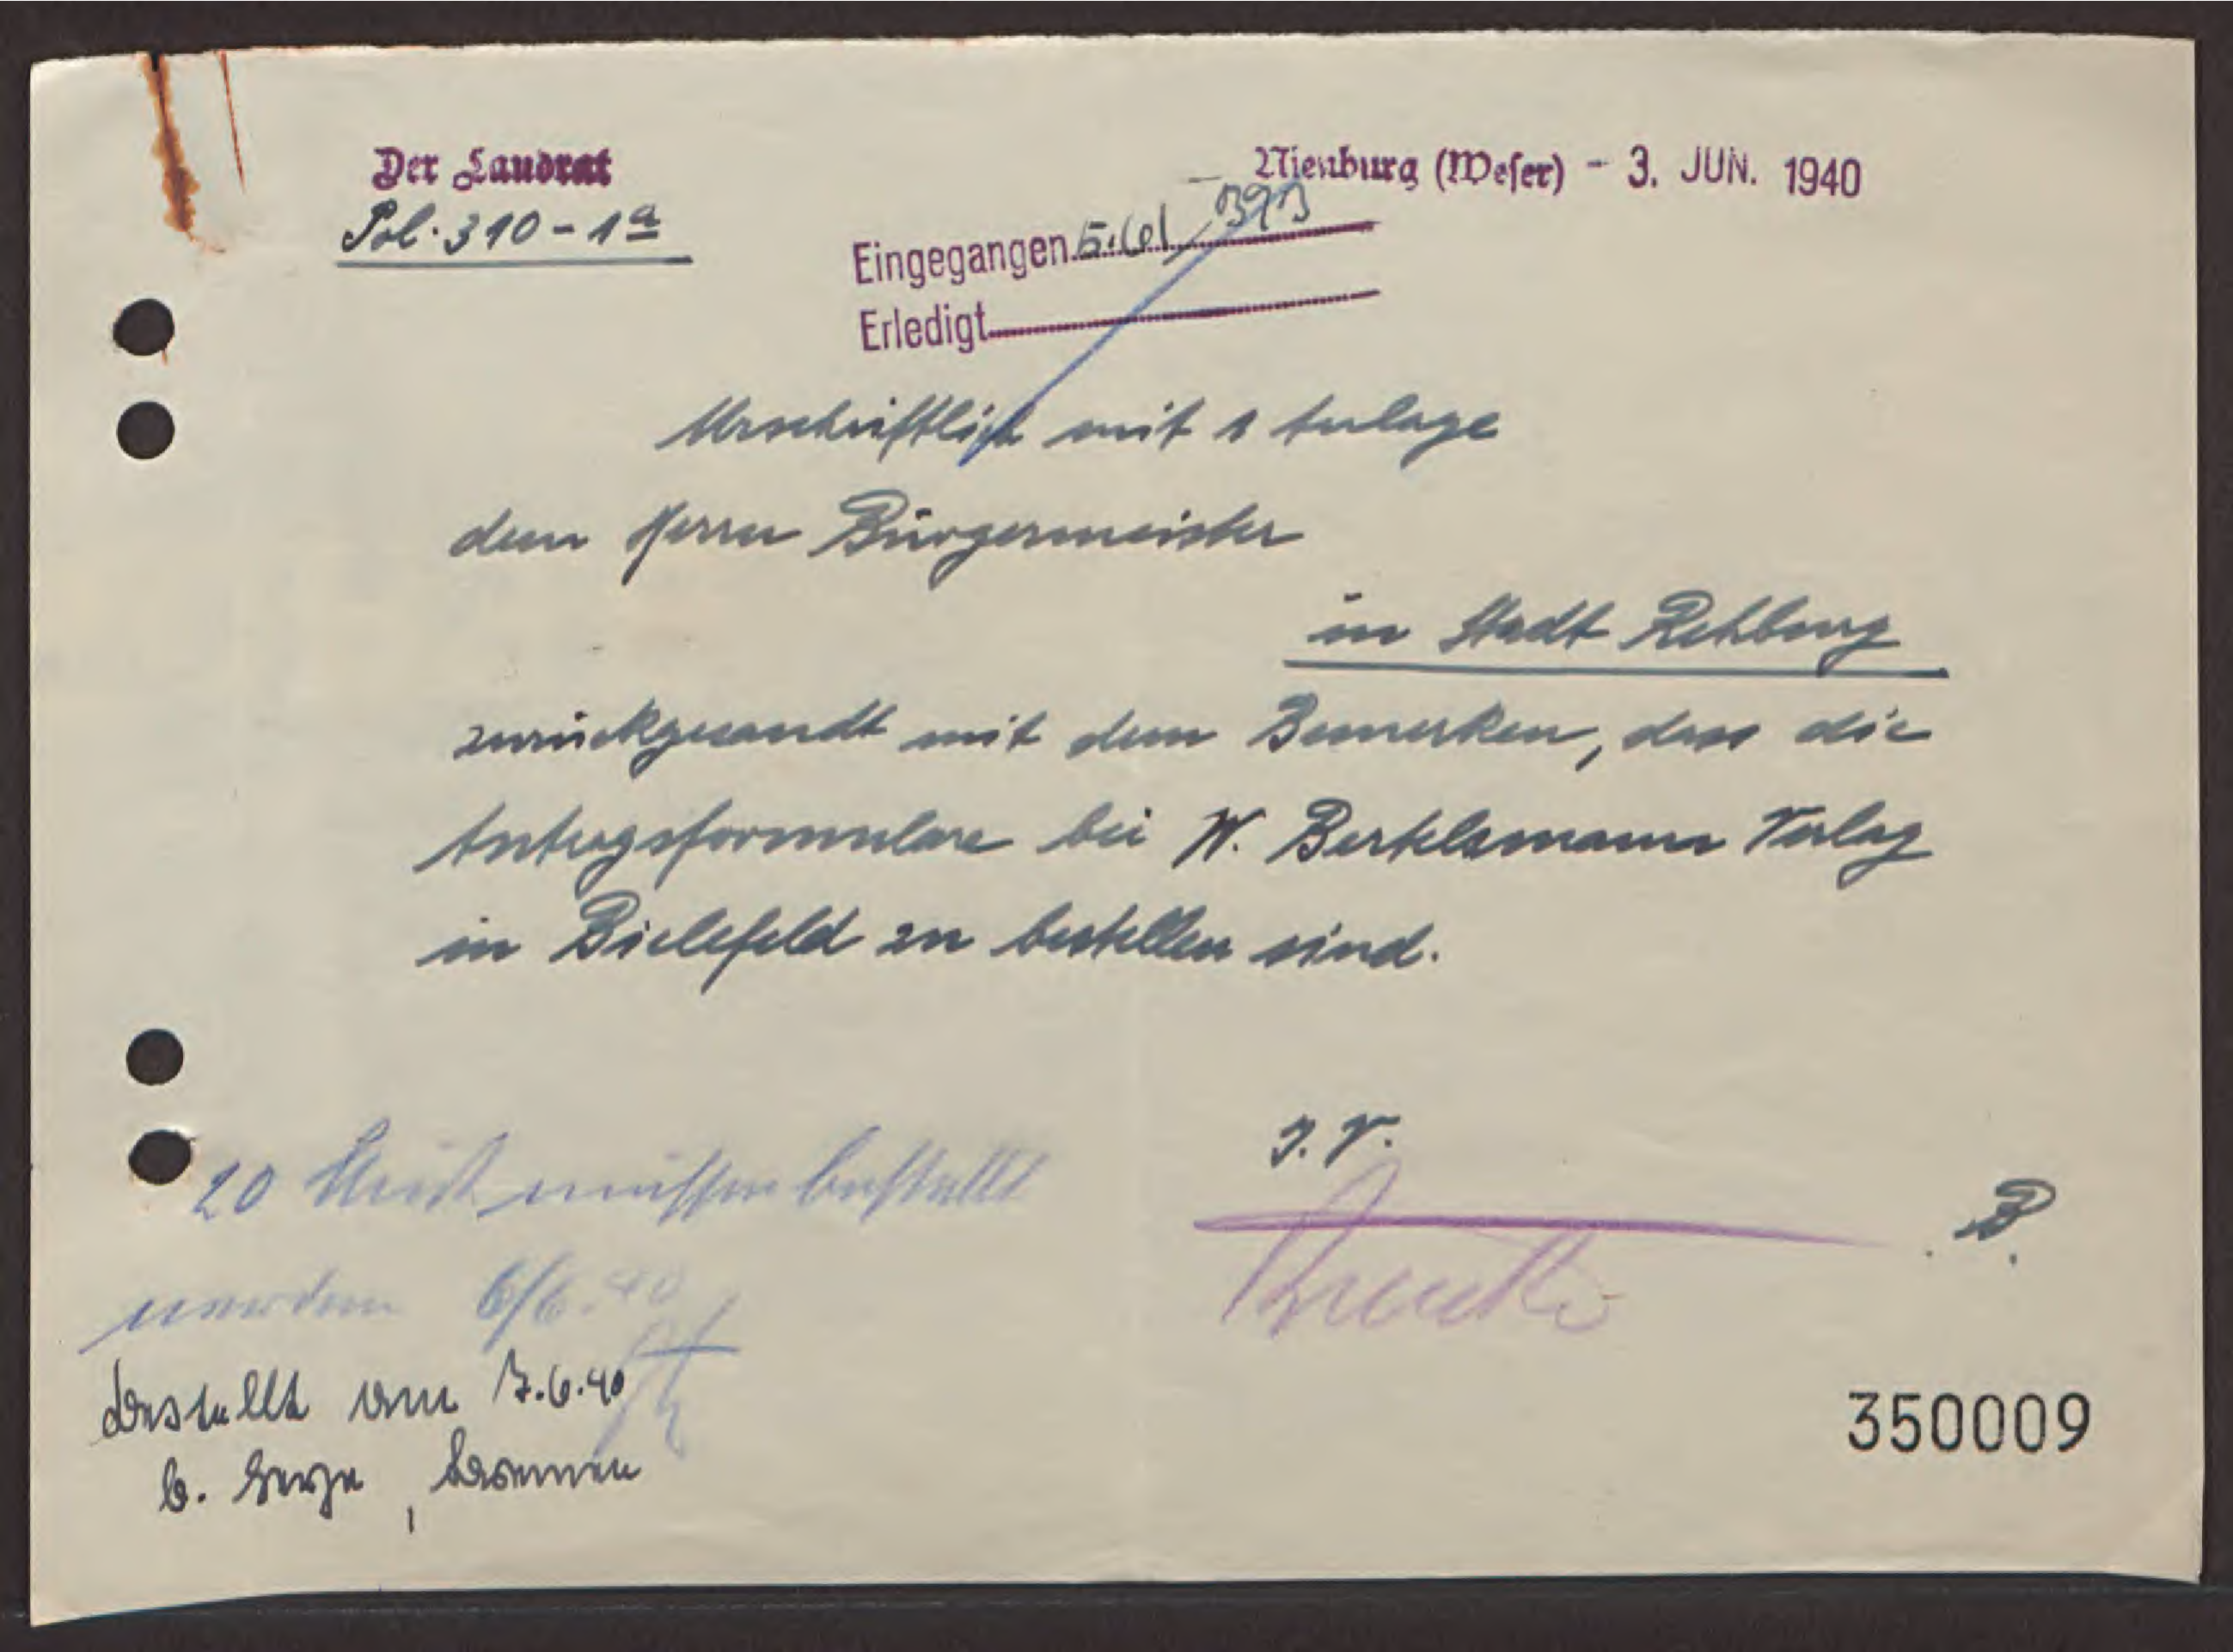 Der Landrat
Pol. 310-1a
Nienburg (Weser) - 3. JUN. 1940
Eingegangen 5.6.
Erledigt
Urschriftlich mit 1 Anlage
dem Herrn Bürgermeister
in Stadt Rehburg
zurückgesandt mit dem Bemerken, dass die
Antragsformulare bei W. Bertelsmann Verlag
in Bielefeld zu bestellen sind.
I. V.
B.
20 Stück müssen bestellt
werden 6/6.40
bestellt am 7.6.40
b. Bremen
350009